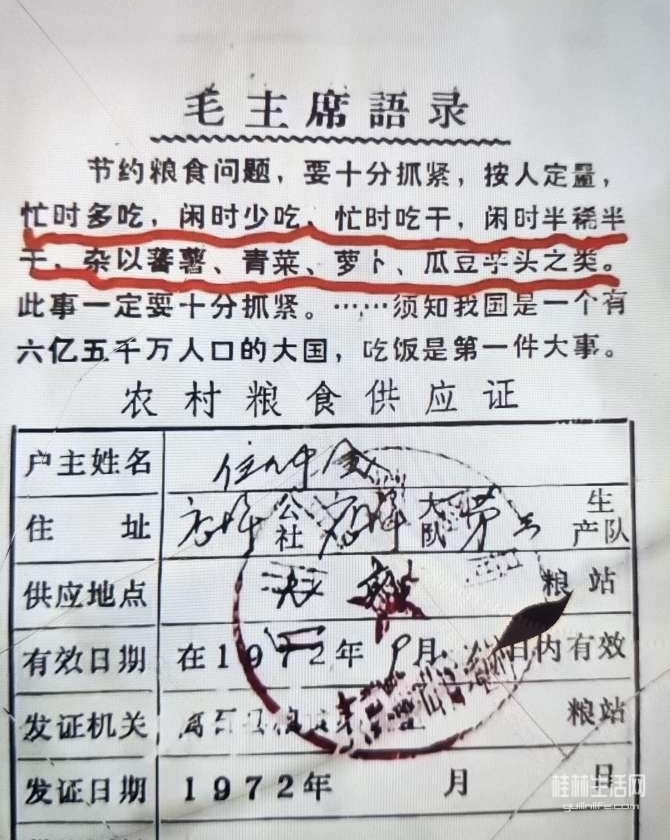 毛主席語录
节约粮食问题，要十分抓紧，按人定量，
忙时多吃，闲时少吃、忙时吃干，闲时半稀半
干、杂以蕃薯、青菜、萝卜、瓜豆芋头之类。
此事一定要十分抓紧。……须知我国是一个有
六亿五千万人口的大国，吃饭是第一件大事。
农村粮食供应证
户主姓名
住址 公社 大队 生产队
供应地点 粮站
有效日期 在1972年9月 日内有效
发证机关 粮站
发证日期 1972年 月 日
桂林生活网
guilinlife.com